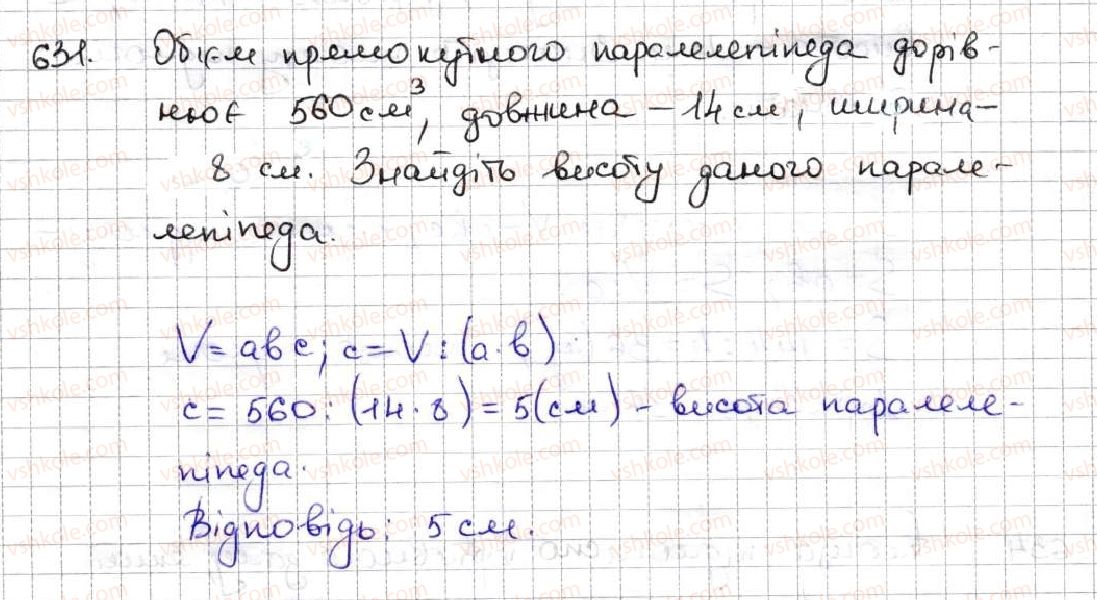 631. Об'єм прямокутного паралелепіпеда дорів-
нює 560 см³, довжина – 14 см, ширина –
8 см. Знайдіть висоту даного парале-
лепіпеда.
V = abc; c = V : (a · b)
c = 560 : (14 · 8) = 5 (см) – висота паралеле-
піпеда.
Відповідь: 5 см.